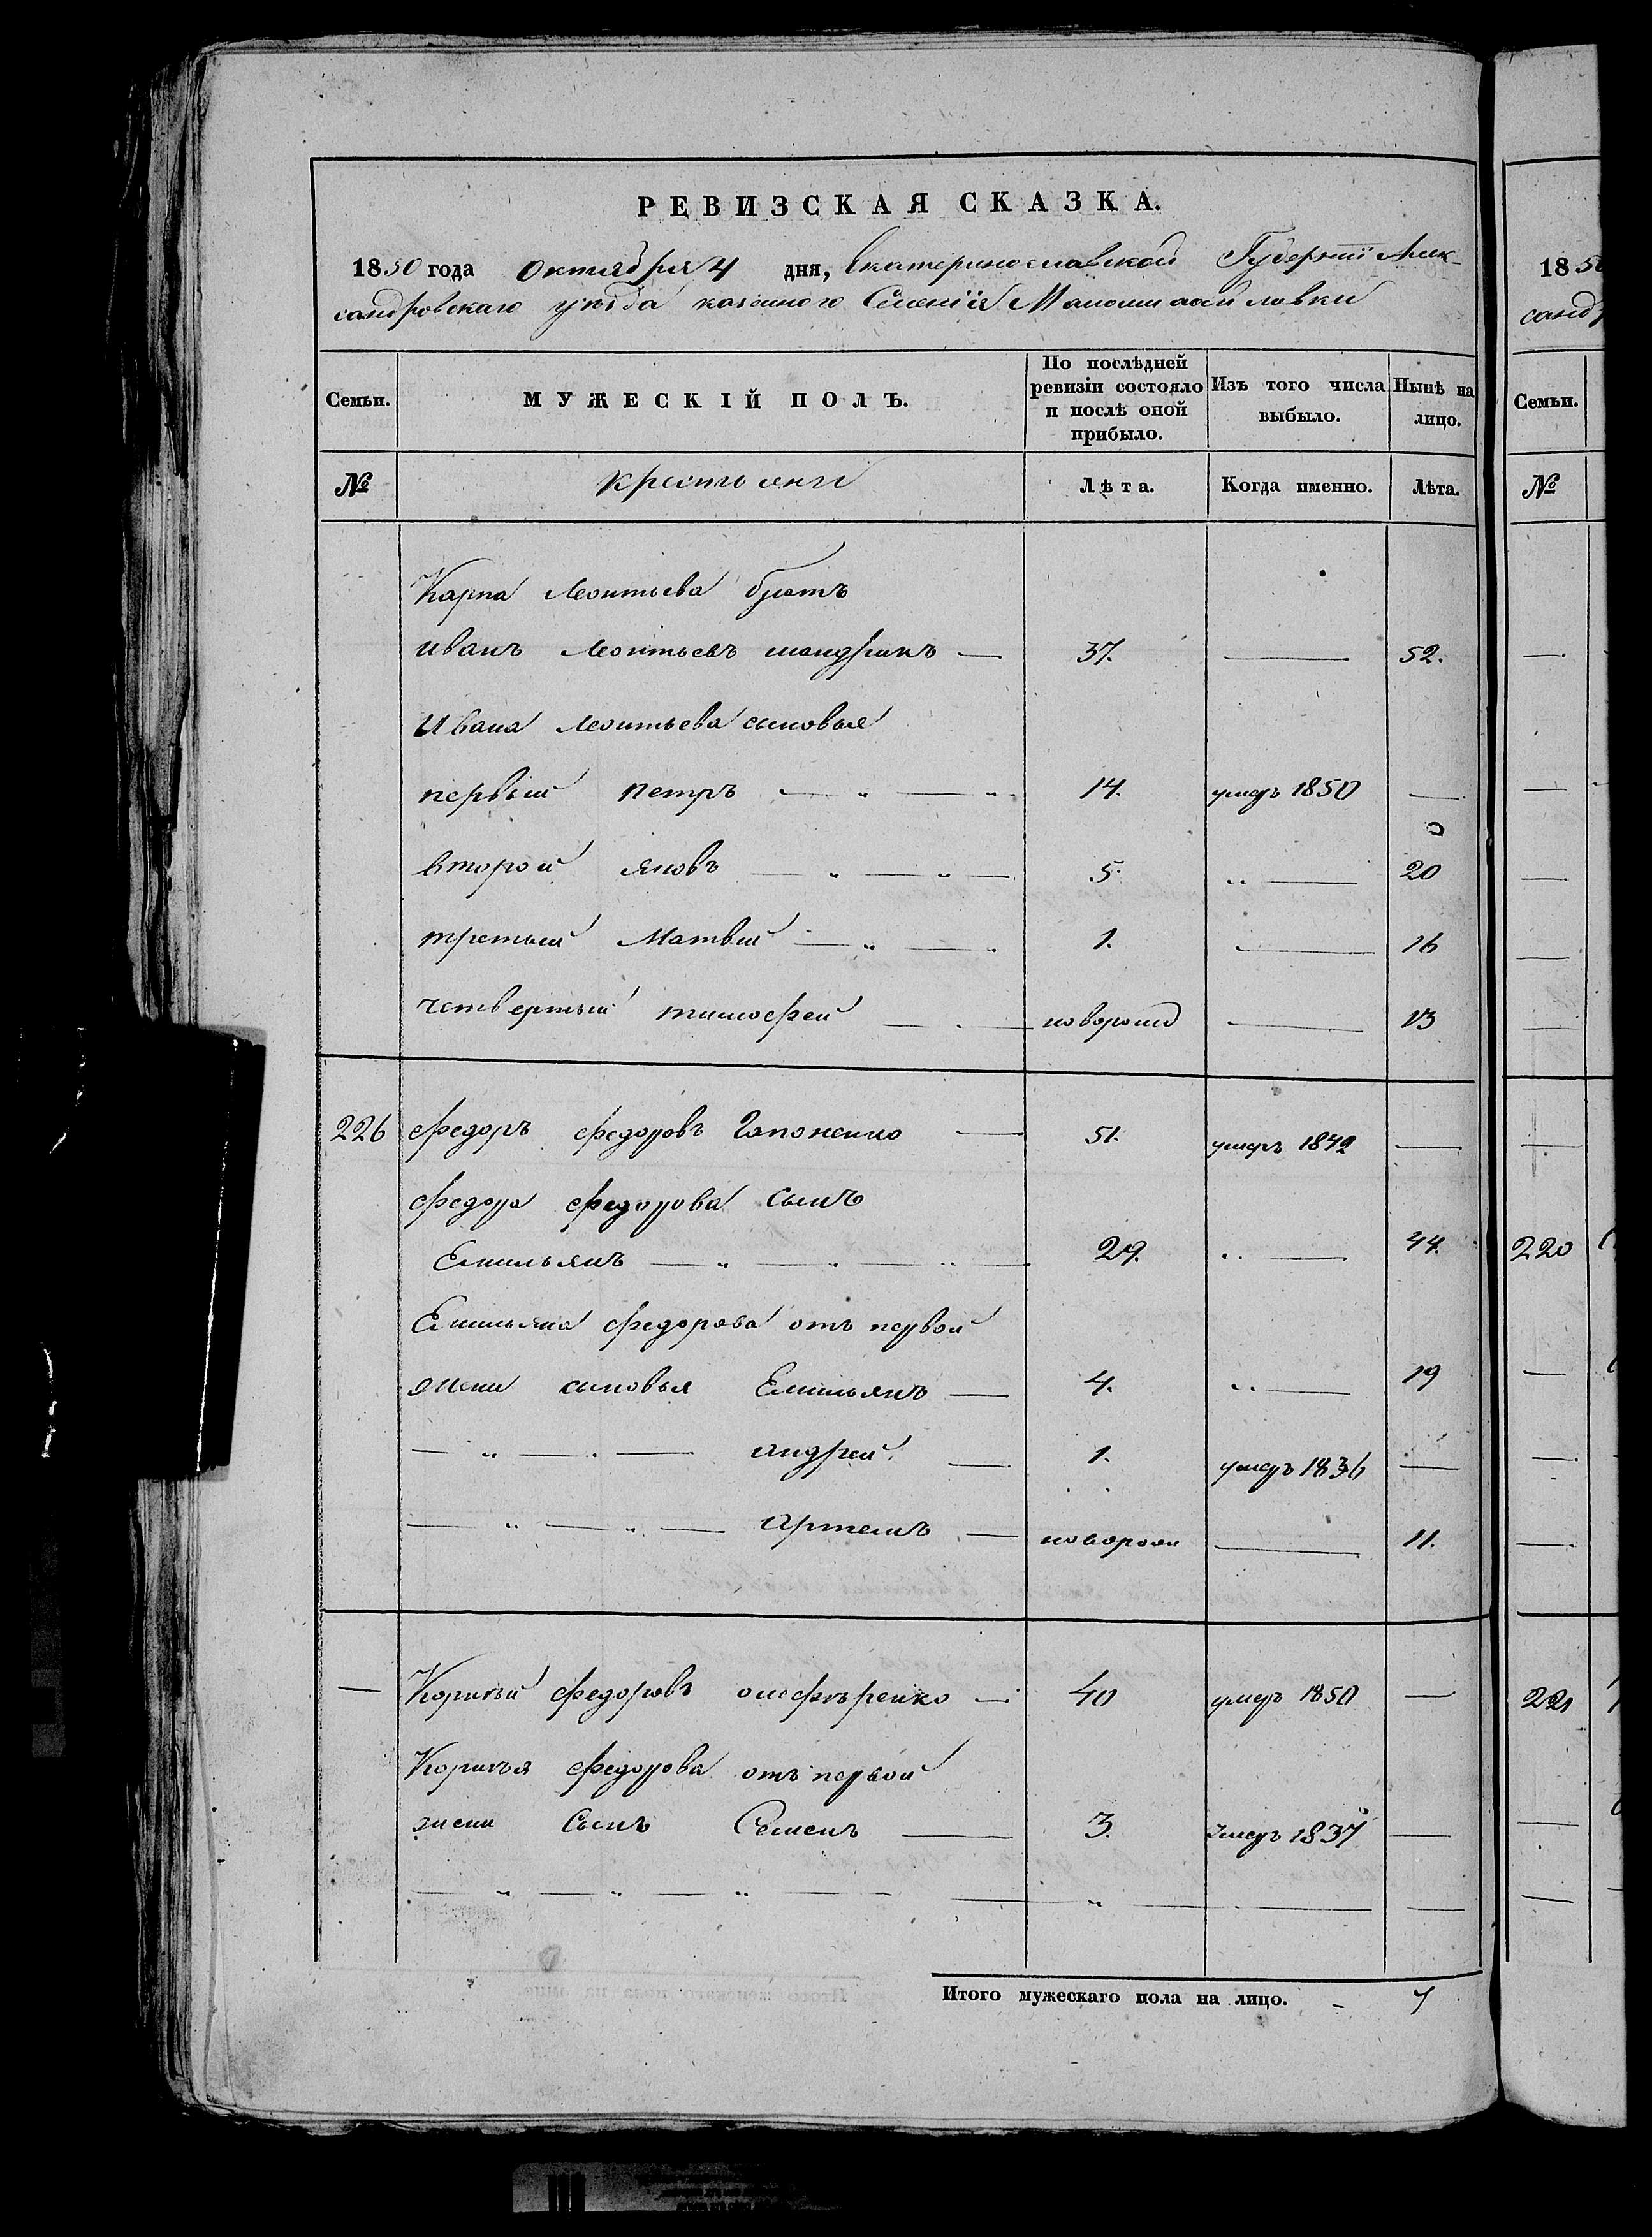 РЕВИЗСКАЯ СКАЗКА.
1850 года Октября 4 дня, Екатеринославской Губернiи Алек-
сандровскаго уѣзда казенного Селенiя Маломихайловки
Семьи.
МУЖЕСКIЙ ПОЛЪ.
По послѣдней ревизiи состояло и послѣ оной прибыло.
Изъ того числа выбыло.
Нынѣ на лицо.
№
крестьяни
Лѣта.
Когда именно.
Лѣта.
Карпа Леонтьева братъ
Иванъ Леонтьевъ мандрикъ — 37. — 52.
Ивана Леонтьева сыновья
первый Петръ — „ — „ 14. умеръ 1850 —
второй Яковъ — „ — „ — 5. „ — 20
третьей Матвей — „ — „ 1. — 16
четвертый тимофей — . — новорожд — 13
226 федоръ федоровъ Гапоненко — 51. умеръ 1842 —
федора федорова сынъ
Емильянъ — „ — „ — „ — 29. „ — 44.
Емильяна федорова отъ первой
жени сыновья Емильянъ — 4. „ — 19
— „ — . — андрей — 1. умеръ 1836 —
— „ — „ — Артемъ — новорож — 11.
— Корнѣй федоровъ — 40 умеръ 1850 —
Корнѣя федорова отъ первой
жени Сынъ Семенъ — 3. умеръ 1837 —
— „ — „ — „ — — „ — — —
Итого мужескаго пола на лицо. - 7
18 50
санд
Семьи.
№
220
221